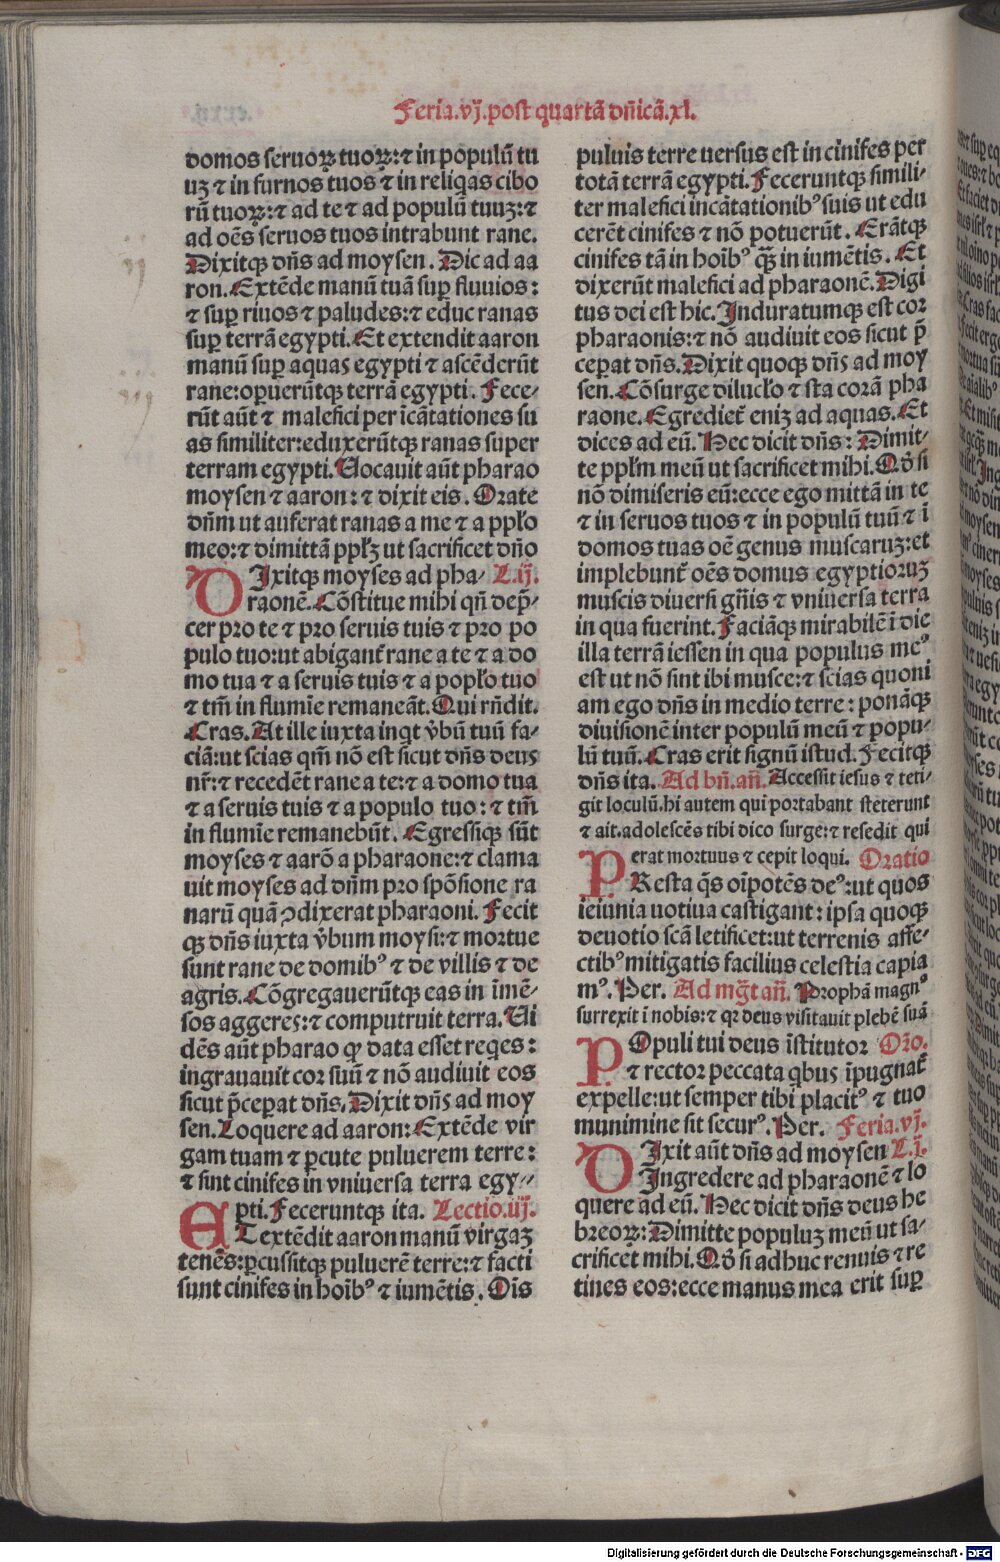 Feria.vj.post quartā dn̄icā.xl.
domos seruoꝝ tuoꝝ:⁊ in populū tu
uʒ ⁊ in furnos tuos ⁊ in reliq̄as cibo
rū tuoꝝ:⁊ ad te ⁊ ad populū tuuʒ:⁊
ad oēs seruos tuos intrabunt rane.
Dixitqꝫ dn̄s ad moysen. Dic ad aa
ron. Extēde manū tuā suꝑ fluuios:
⁊ suꝑ riuos ⁊ paludes:⁊ educ ranas
suꝑ terrā egypti. Et extendit aaron
manū suꝑ aquas egypti ⁊ ascēderūt
rane:oꝑuerūtqꝫ terrā egypti. Fece⸗
rūt aūt ⁊ malefici per īcātationes su
as similiter:eduxerūtqꝫ ranas super
terram egypti. Uocauit aūt pharao
moysen ⁊ aaron:⁊ dixit eis. Orate
dn̄m ut auferat ranas a me ⁊ a pplo
meo:⁊ dimittā pplʒ ut sacrificet dn̄o
DIxitqꝫ moyses ad pha⸗ L.ij.
raonē. Cōstitue mihi qn̄ dep̄⸗
cer pro te ⁊ pro seruis tuis ⁊ pro po
pulo tuo:ut abigant̄ rane a te ⁊ a do
mo tua ⁊ a seruis tuis ⁊ a poplo tuo
⁊ tm̄ in flumīe remaneāt. Qui rn̄dit.
Cras. At ille iuxta inqͭ v̓bū tuū fa⸗
ciā:ut scias qm̄ nō est sicut dn̄s deus
nr̄:⁊ recedēt rane a te:⁊ a domo tua
⁊ a seruis tuis ⁊ a populo tuo:⁊ tm̄
in flumīe remanebūt. Egressiqꝫ sūt
moyses ⁊ aarō a pharaone:⁊ clama
uit moyses ad dn̄m pro spōsione ra
narū quā ꝯdixerat pharaoni. Fecit
qꝫ dn̄s iuxta v̓bum moysi:⁊ mortue
sunt rane de domibꝰ ⁊ de villis ⁊ de
agris. Cōgregauerūtqꝫ eas in īmē⸗
sos aggeres:⁊ computruit terra. Ui
dēs aūt pharao ꝙ data esset reqͥes:
ingrauauit cor suū ⁊ nō audiuit eos
sicut p̄ceꝑat dn̄s. Dixit dn̄s ad moy
sen. Loquere ad aaron: Extēde vir
gam tuam ⁊ ꝑcute puluerem terre:
⁊ sint cinifes in vniuersa terra egy⸗
pti. Feceruntqꝫ ita. Lectio.iij.
ETextēdit aaron manū virgaʒ
tenēs:ꝑcussitqꝫ puluerē terre:⁊ facti
sunt cinifes in hoībꝰ ⁊ iumētis. Oīs
puluis terre uersus est in cinifes per
totā terrā egypti. Feceruntqꝫ simili⸗
ter malefici incātationibꝰ suis ut edu
cerēt cinifes ⁊ nō potuerūt. Erātqꝫ
cinifes tā in hoībꝰ qꝫ̄ in iumētis. Et
dixerūt malefici ad pharaonē. Digi
tus dei est hic. Induratumqꝫ est cor
pharaonis:⁊ nō audiuit eos sicut p̄
ceꝑat dn̄s. Dixit quoqꝫ dn̄s ad moy
sen. Cōsurge diluclo ⁊ sta corā pha
raone. Egrediet̄ eniʒ ad aquas. Et
dices ad eū. Hec dicit dn̄s: Dimit⸗
te pplm meū ut sacrificet mihi. Qd̓ si
nō dimiseris eū:ecce ego mittā in te
⁊ in seruos tuos ⁊ in populū tuū ⁊ ī
domos tuas oē genus muscaruʒ:et
implebunt̄ oēs domus egyptioruʒ
muscis diuersi gn̄is ⁊ vniuersa terra
in qua fuerint. Faciāqꝫ mirabilē ī die
illa terrā iessen in qua populus meꝰ
est ut nō sint ibi musce:⁊ scias quoni
am ego dn̄s in medio terre: ponāqꝫ
diuisionē inter populū meū ⁊ popu⸗
lū tuū. Cras erit signū istud. Fecitqꝫ
dn̄s ita. Ad bn̄.an̄. Accessit iesus ⁊ teti⸗
git loculū.hi autem qui portabant steterunt
⁊ ait.adolescēs tibi dico surge:⁊ resedit qui
erat mortuus ⁊ cepit loqui. Oratio
PResta q̄s oīpotēs deꝰ:ut quos
ieiunia uotiua castigant: ipsa quoqꝫ
deuotio scā letificet:ut terrenis affe⸗
ctibꝰ mitigatis facilius celestia capia
mꝰ. Per. Ad mg̅t an̄. Prophā magnꝰ
surrexit ī nobis:⁊ qꝛ deus visitauit plebē suā
POpuli tui deus īstitutor Or̄o.
⁊ rector peccata qͥbus īpugnat̄
expelle:ut semper tibi placitꝰ ⁊ tuo
munimine sit securꝰ. Per. Feria.vj.
DIxit aūt dn̄s ad moysen L.j.
Ingredere ad pharaonē ⁊ lo
quere ad eū. Hec dicit dn̄s deus he
breoꝝ: Dimitte populuʒ meū ut sa⸗
crificet mihi. Qd̓ si adhuc renuis ⁊ re
tines eos:ecce manus mea erit suꝑ
Digitalisierung gefördert durch die Deutsche Forschungsgemeinschaft - DFG